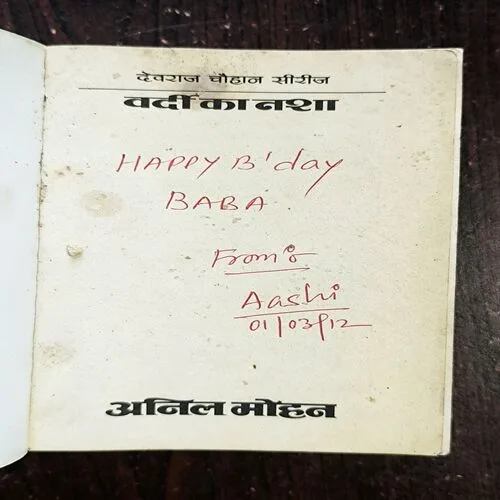 देवराज चौहान सीरीज
वर्दी का नशा
HAPPY B'day
BABA
From:
Aashi
01/03/12
अनिल मोहन